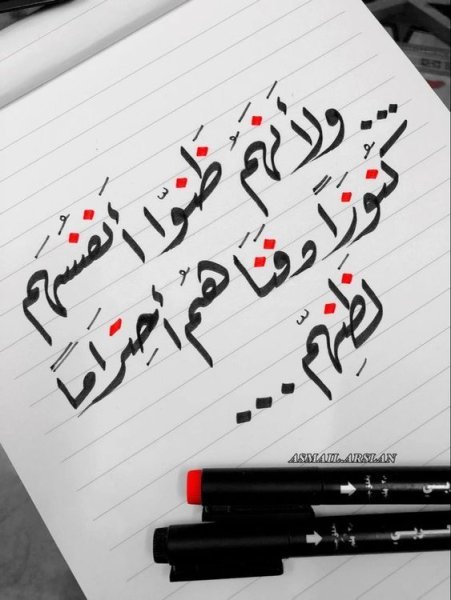 ... ولأَنهَمُ ظَنوّا أَنفسُهَم
كنُوزَاً دفنَاهمُ أحتِرَاماً
لظَنِهمّ ...
ASMAIL.ARSLAN